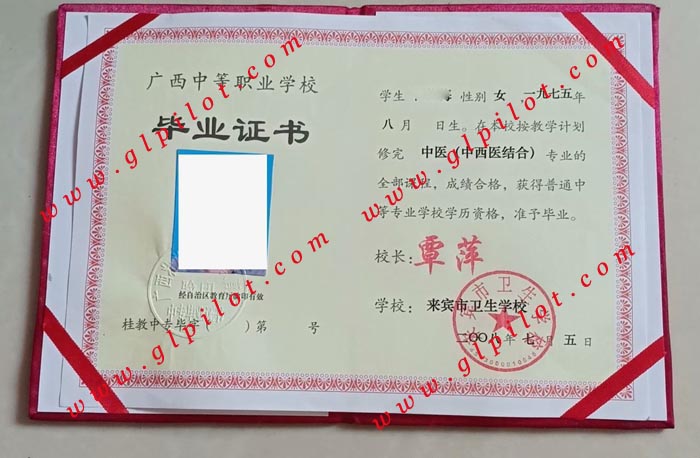 广西中等职业学校
毕业证书
经自治区教育厅验印有效
桂教中专毕字( )第 号
学生 性别 女 一九七五年
八月 日生。在本校按教学计划
修完 中医(中西医结合) 专业的
全部课程,成绩合格,获得普通中
等专业学校学历资格,准予毕业。
校长: 覃萍
学校: 来宾市卫生学校
二〇〇八年 七月 五日
来宾市卫生学校
www.glpilot.com
www.glpilot.com
www.glpilot.com
www.glpilot.com
www.glpilot.com
www.glpilot.com